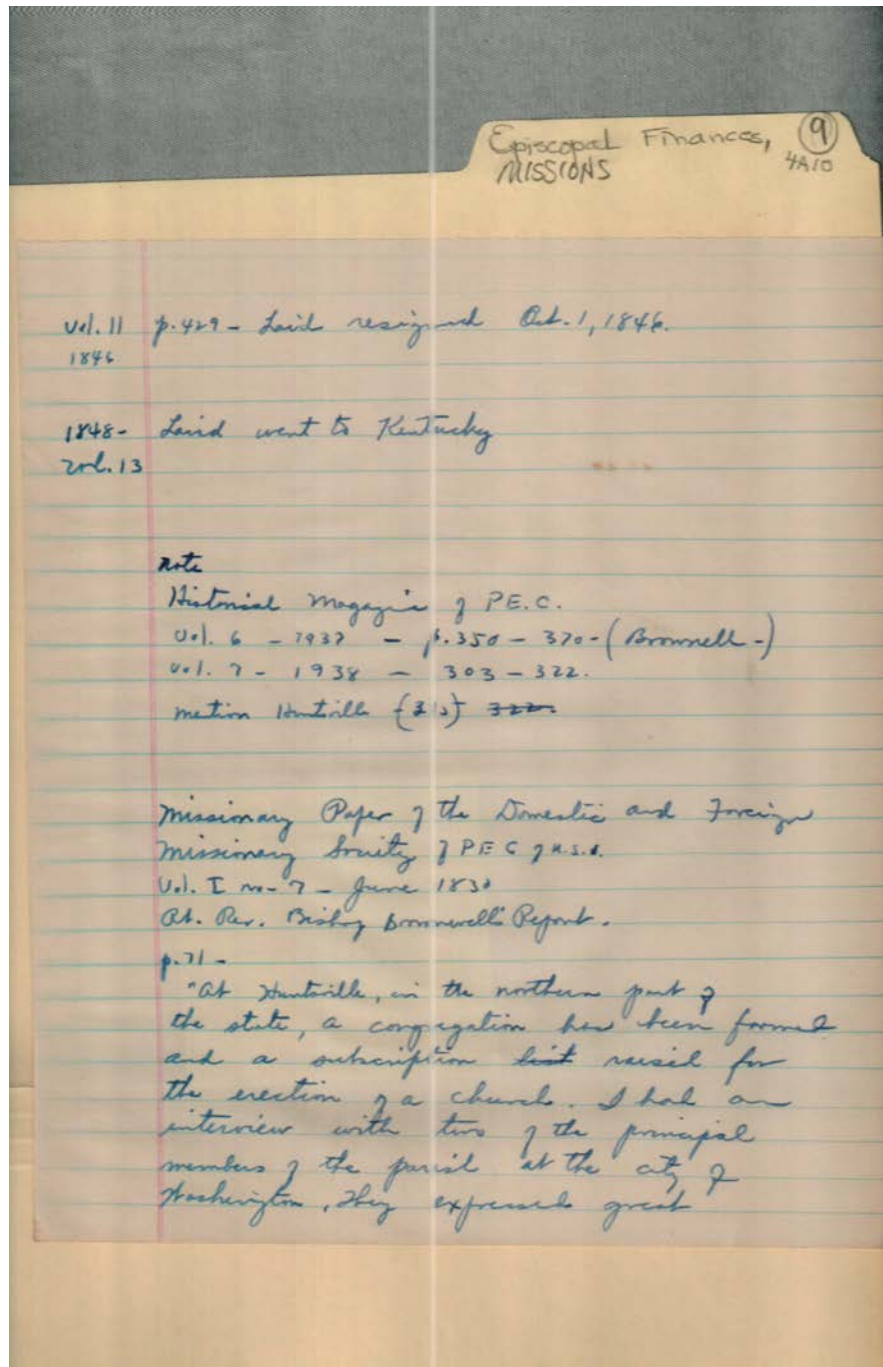 Episcopal Finances, 9
MISSIONS 4A10
Vol. 11 p. 429 - Laird resigned Oct. 1, 1846.
1846
1848- Laird went to Kentucky
Vol. 13
note
Historical Magazine of P.E.C.
Vol. 6 - 1937 - p. 350 - 370 - (Brownell -)
Vol. 7 - 1938 - 303 - 322.
mention Huntsville 322.
Missionary Paper of the Domestic and Foreign
Missionary Society of PEC of U.S.A.
Vol. I no - 7 - June 1830
Rt. Rev. Bishop Brownell's Report.
p. 71 -
"At Huntsville, in the northern part of
the state, a congregation has been formed
and a subscription list raised for
the erection of a church. I had an
interview with two of the principal
members of the parish at the city of
Washington. They expressed great